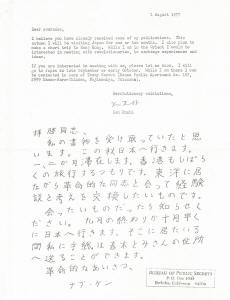 1 August 1977
Dear comrades,
I believe you have already received some of my publications. This
fall I will be visiting Japan for one or two months. I also plan to
make a short trip to Hong Kong. While I am in the Orient I would be
interested in meeting with revolutionaries, to exchange experiences and
ideas.
If you are interested in meeting with me, please let me know. I will
be in Japan in late September or early October. While I am there I can
be contacted in care of
Revolutionary salutations,
Ken Knabb
拝啓同志、
私の書物を受け取っていたと思
います。この秋日本へ行きます。
一、二か月滞在します。香港もしばら
くの旅行するつもりです。東洋に居
ながら革命的な同志と会って経験
談と考えを交換したいものです。
会ったいものだったら知らせく
ださい。九月の終わりか十月早く
に日本へ行きます。そこに居たいる
間私に手紙は
送ることができます。
革命的なあいさつ、
ナブ・ケン
BUREAU OF PUBLIC SECRETS
P.O. Box 1044
Berkeley, California 94701